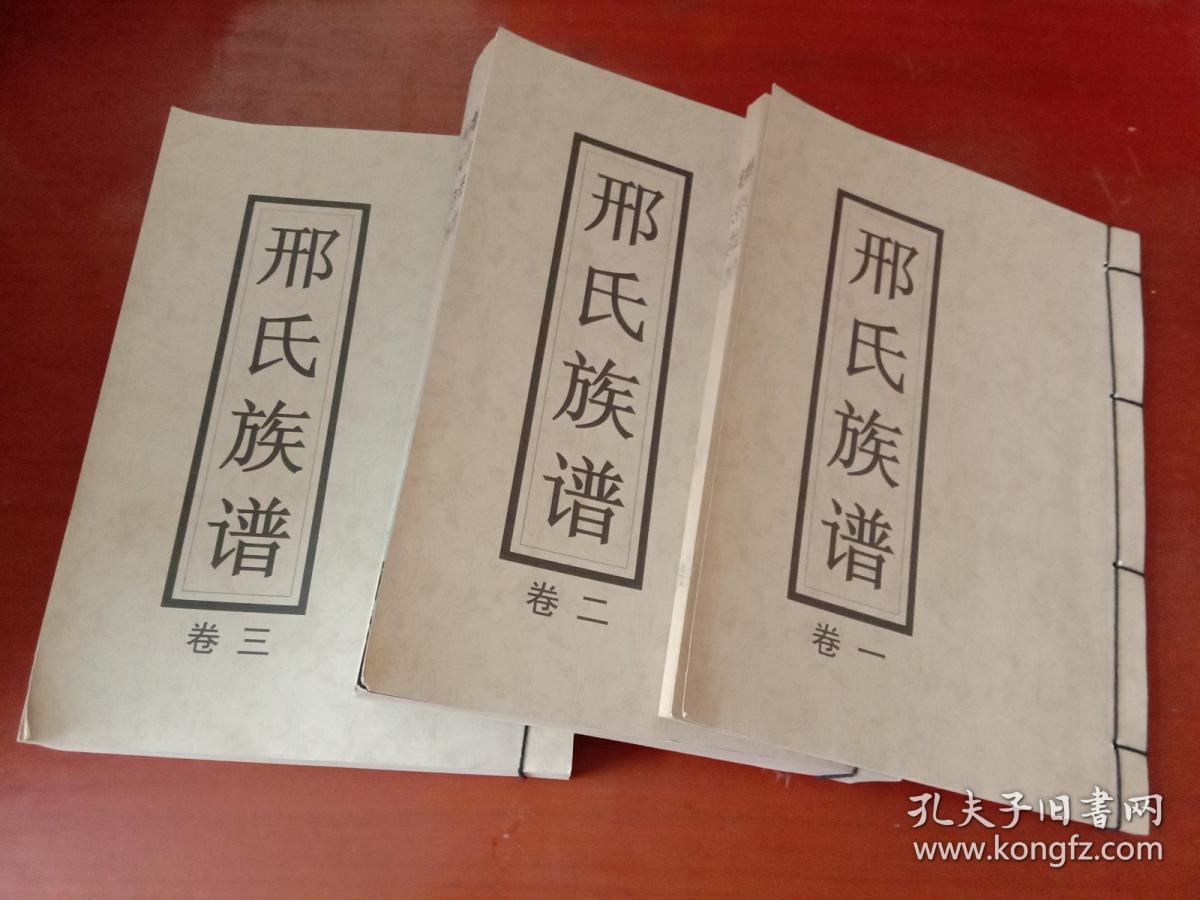 邢氏族谱
卷三
邢氏族谱
卷二
邢氏族谱
卷一
孔夫子旧書网
www.kongfz.com